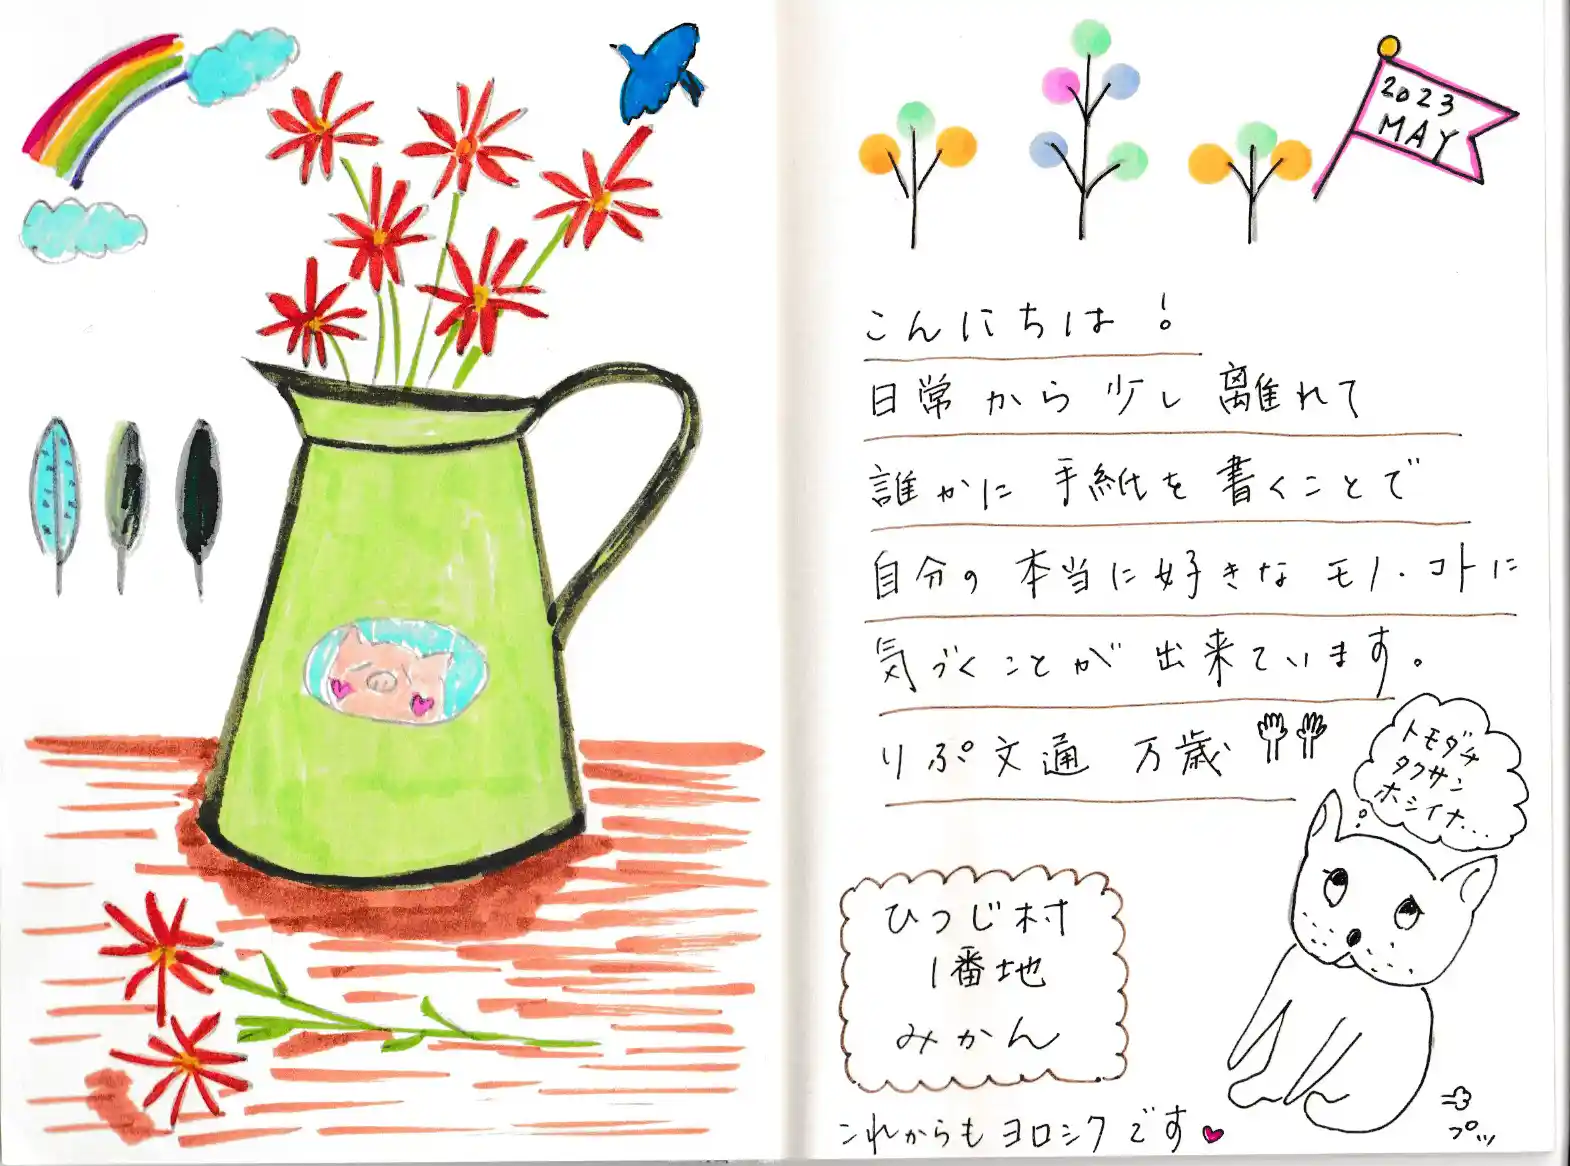 2023
MAY
こんにちは!
日常から少し離れて
誰かに手紙を書くことで
自分の本当に好きなモノ・コトに
気づくことが出来ています。
りぷ文通 万歳
トモダチ
タクサン
ホシイナ...
ひつじ村
1番地
みかん
プッ
これからもヨロシクです